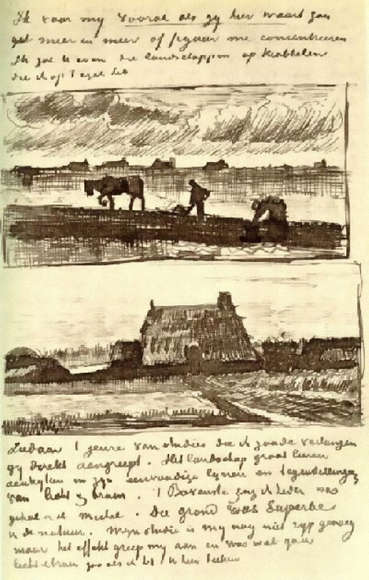 Ik zou my vooral als gy hier waart zou
meer en meer op figuur me concentreeren
Ik zal U even die landschappen op krabbelen
die ik op 't ezel heb
Ziedaar 't genre van studies die ik zoude verlangen
gy direkt aangreept. Het landschap groot leeren
aankyken in zyn eenvoudige lynen en tegenstellingen
van licht & bruin. 't Bovenste zag ik heden was
geheel Michel. Die grond was Superbe
in de natuur. Myn studie is my nog niet ryp genoeg
maar het effekt greep my aan en was wel qua
licht & bruin zoo als ik 't U hier teeken